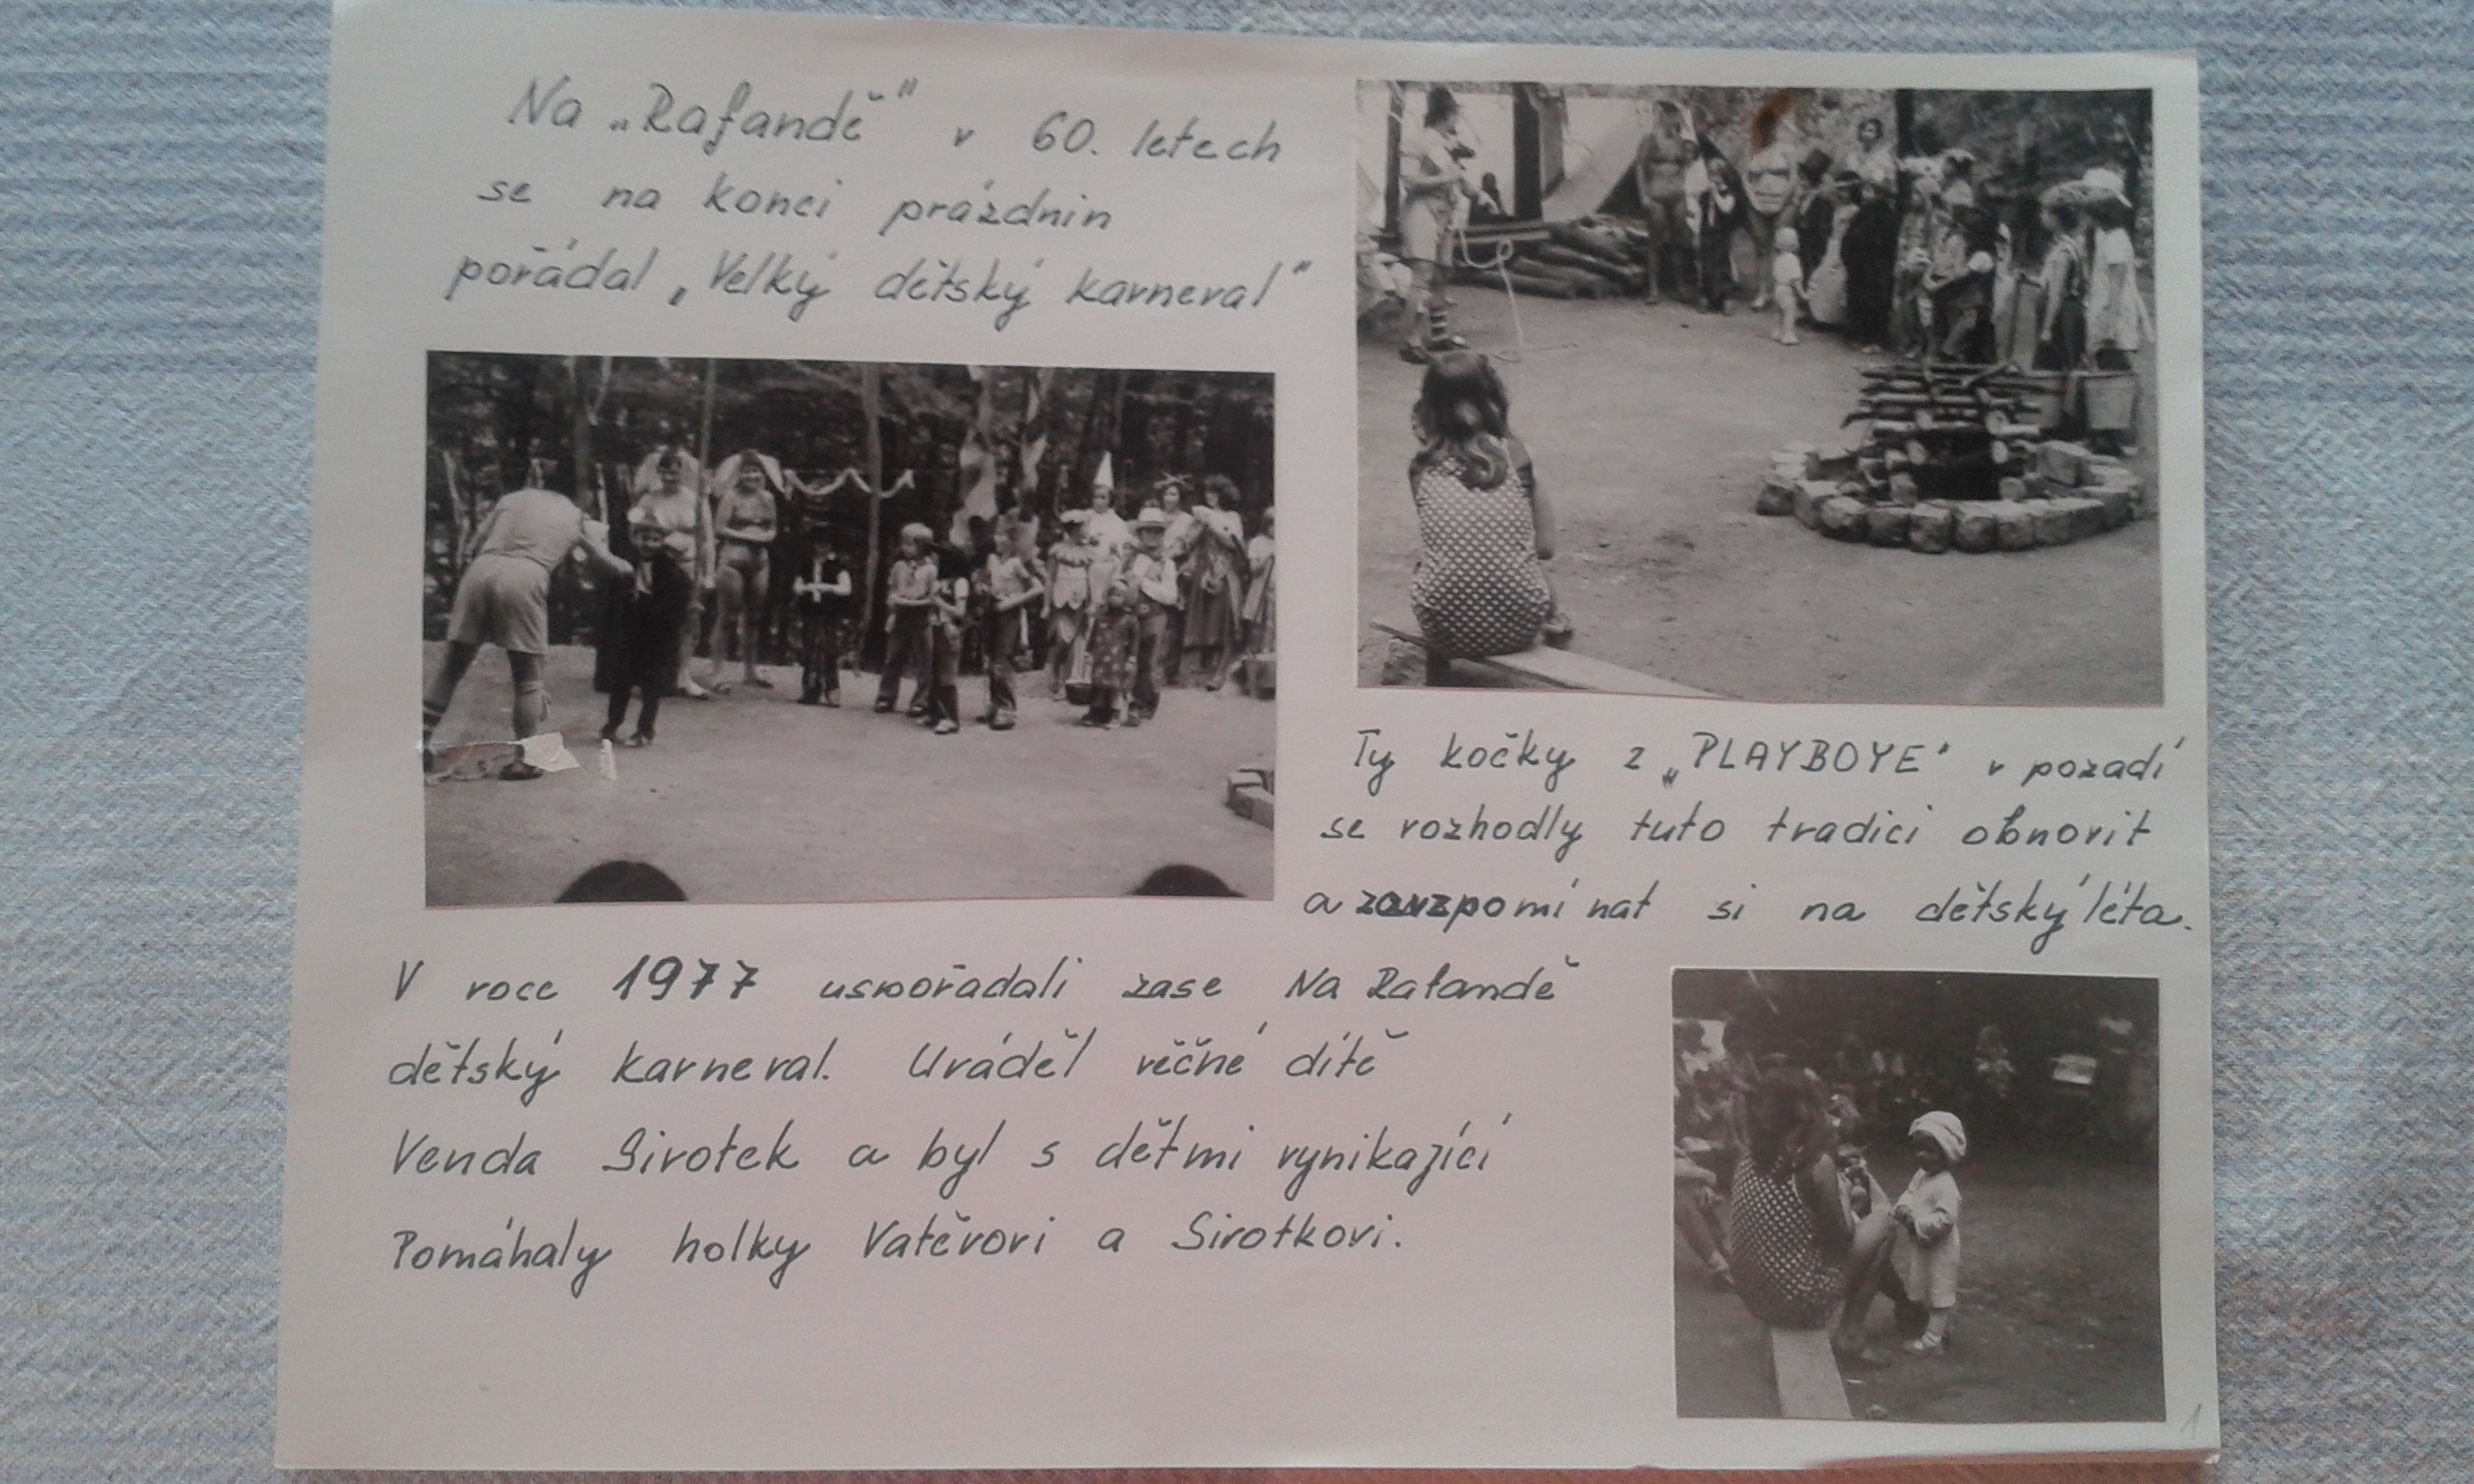 Na „Rafandě" v 60. letech
se na konci prázdnin
pořádal „Velký dětský karneval"
Ty kočky z „PLAYBOYE" v pozadí
se rozhodly tuto tradici obnovit
a zavzpomínat si na dětský léta.
V roce 1977 uspořádali zase Na Rafandě
dětský karneval. Uváděl věčné dítě
Venda Sirotek a byl s dětmi vynikající
Pomáhaly holky Vatěrovi a Sirotkovi.
1